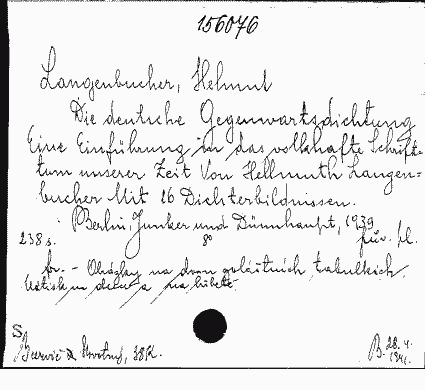 156076
Langenbucher, Helmut
Die deutsche Gegenwartsdichtung
Eine Einführung in das volkhafte Schrift-
tum unserer Zeit Von Hellmuth Langen-
bucher Mit 16 Dichterbildnissen.
Berlin, Junker und Dünnhaupt, 1939
238 s. 8° fl.
- Obrázky na dvou zvláštních tabulkách
na hřbetě
S.
38K.
B. 28. 4.